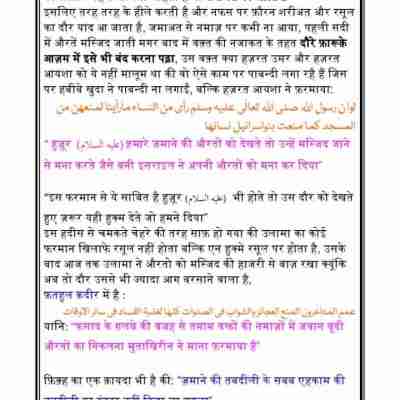 इसलिए तरह तरह के हीले करती है और नफस पर फ़ौरन शरीअत और रसूल
का दौर याद आ जाता है, जमाअत से नमाज़ पर कभी ना आया, पहली सदी
में औरतें मस्जिद जाती मगर बाद में वक़्त की नजाकत के तहत दौरे फ़ारूक़े
आज़म में इसे भी बंद करना पड़ा, उस वक़्त क्या हज़रत उमर और हज़रत
आयशा को ये नहीं मालूम था की वो ऐसे काम पर पाबन्दी लगा रहे हैं जिस
पर हबीबे खुदा ने पाबन्दी ना लगाई, बल्कि हज़रत आयशा ने फ़रमाया:
لو ان رسول الله صلى الله تعالى عليه وسلم رأى من النساء مارأينا لمنعهن من
المسجد كما منعت بنواسرائيل نسائها
" हुज़ूर (عليه السلام) हमारे ज़माने की औरतों को देखते तो उन्हें मस्जिद जाने
से मना करते जैसे बनी इसराइल ने अपनी औरतों को मना कर दिया"
"इस फरमान से ये साबित है हुज़ूर (عليه السلام) भी होते तो उस दौर को देखते
हुए ज़रूर यही हुक्म देते जो हमने दिया"
इस हदीस से चमकते चेहरे की तरह साफ़ हो गया की उलामा का कोई
फरमान खिलाफे रसूल नहीं होता बल्कि एन हुक्मे रसूल पर होता है, उसके
बाद आज तक उलामा ने औरतो को मस्जिद की हाज़री से बाज़ रखा क्यूंकि
अब तो दौर उससे भी ज्यादा आग बरसाने वाला है,
फ़तहुल क़दीर में है :
عمم المتاخرون المنع العجائز والشواب في الصلوات كلها لغلبة الفساد في سائر الاوقات
यानि: "फ़साद के ग़लबे की वजह से तमाम वक्तों की नमाज़ों में जवान बूढी
औरतों का निकलना मुताखिरीन ने मना फ़रमाया है"
फ़िक़्ह का एक क़ायदा भी है की: "ज़माने की तबदीली के सबब एहकाम की